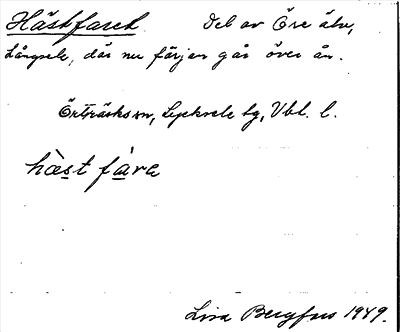 Hästfaret    Del av Öre älv,
Långsele, där nu färjan går över ån.
Örträsks sn, Lycksele tg, Vbl. l.
hæst fàra
Lisa Bergfors 1949.